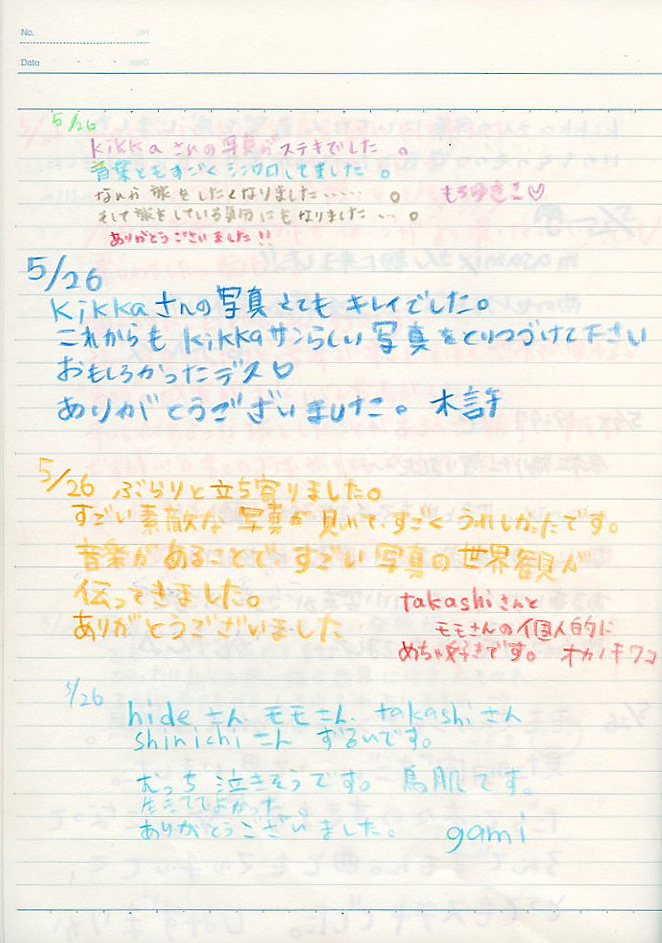 No.
Data
5/26
kikkaさんの写真がステキでした。
音楽ともすごくシンクロしてました。
なんか旅をしたくなりました……。
そして旅をしている気分にもなりました…。
ありがとうございました!!
もろゆきこ♡
5/26
kikkaさんの写真とてもキレイでした。
これからもkikkaサンらしい写真をとりつづけて下さい
おもしろかったデス♡
ありがとうございました。 木許
5/26 ぶらりと立ち寄りました。
すごい素敵な写真が見れて、すごくうれしかったです。
音楽があることで、すごい写真の世界観が
伝ってきました。
ありがとうございました
takashiさんと
モモさんの個人的に
めちゃ好きです。 オカノキワコ
5/26
hideさん モモさん takashiさん
shinichiさん ずるいです。
むっち泣きそうです。鳥肌です。
生きててよかった。
ありがとうございました。 gami